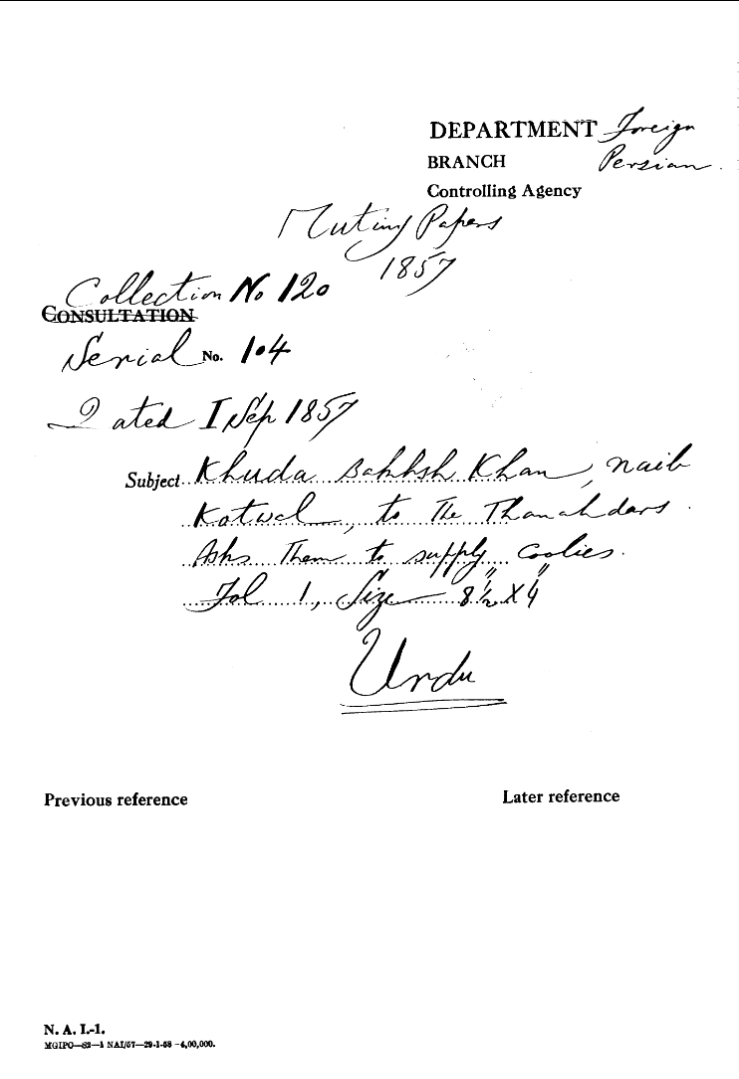 DEPARTMENT Foreign
BRANCH Persian.
Controlling Agency
Mutiny Papers
1857
Collection No 120
CONSULTATION
Serial No. 104
Dated 1 Sep 1857
Subject Khuda Bakhsh Khan, naib
Kotwal, to the Thanahdars.
Asks them to supply Coolies.
Fol 1, Size 8½" X 4"
Urdu
Previous reference
Later reference
N. A. I.-1.
MGIPO—S3—1 NAI/57—29-1-58—4,00,000.